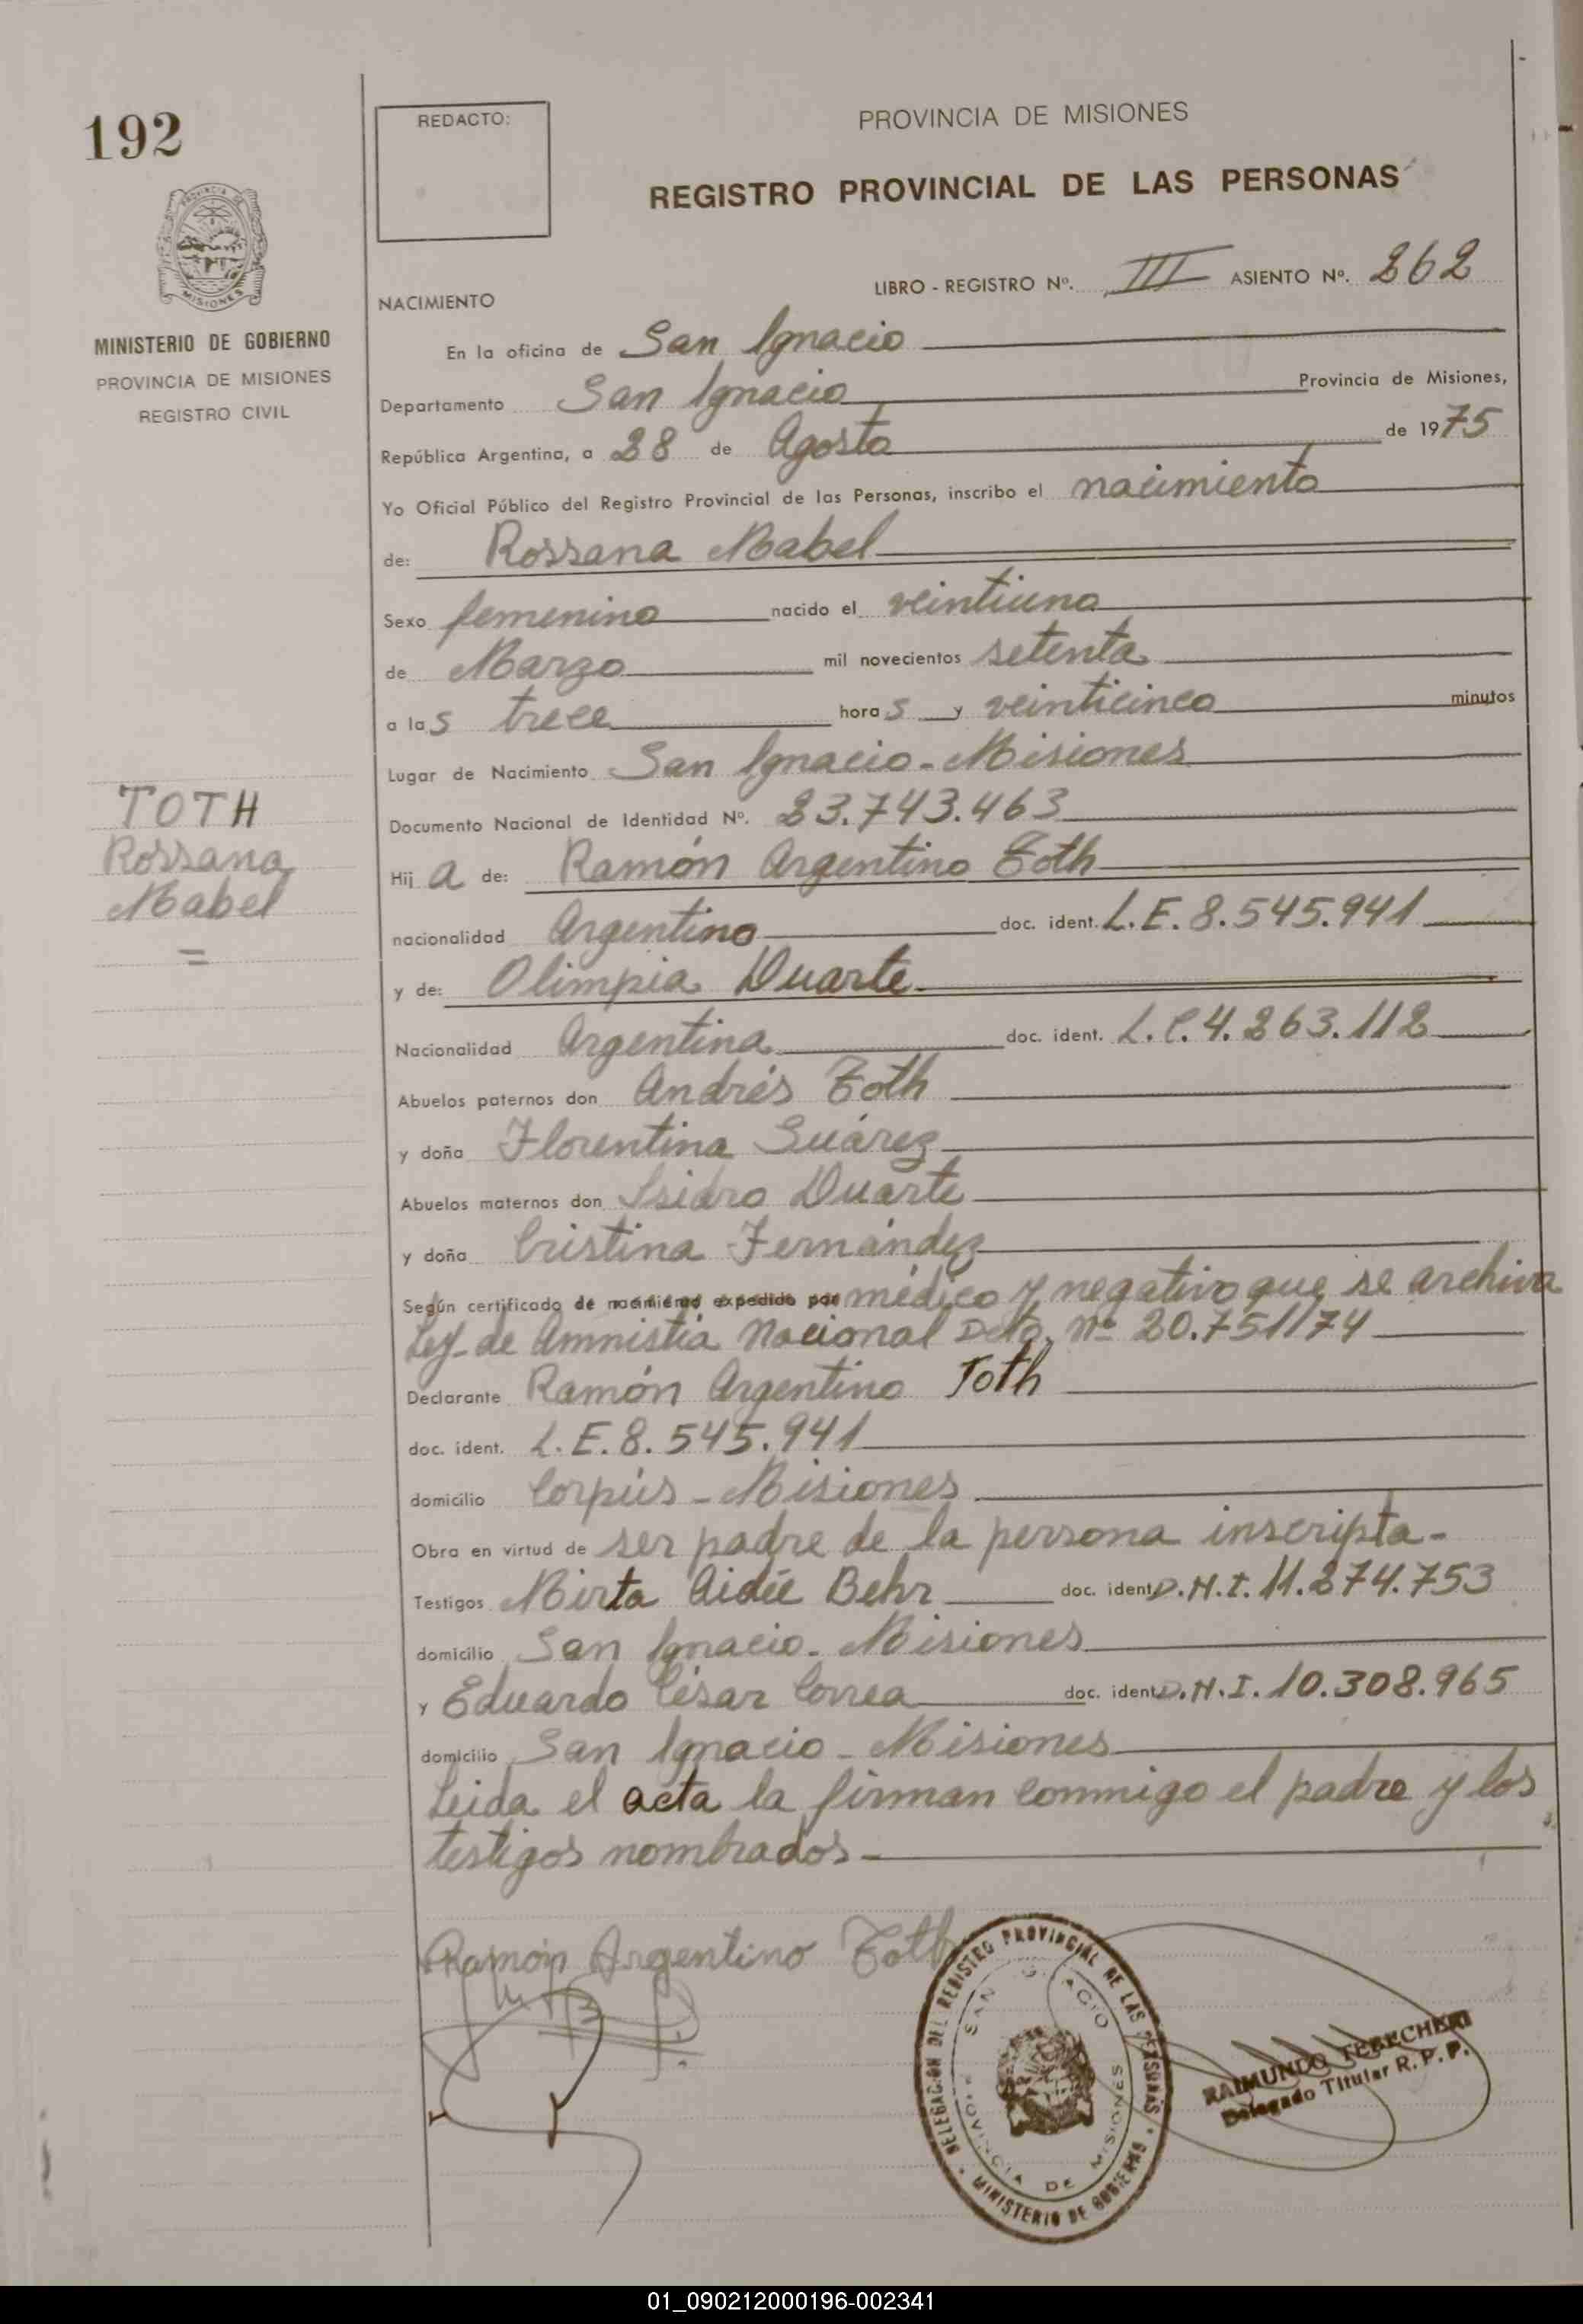 192
REDACTO:
PROVINCIA DE MISIONES
REGISTRO PROVINCIAL DE LAS PERSONAS
PROVINCIA DE
MISIONES
MINISTERIO DE GOBIERNO
PROVINCIA DE MISIONES
REGISTRO CIVIL
LIBRO - REGISTRO Nº. III ASIENTO Nº. 262
NACIMIENTO
En la oficina de San Ignacio
Departamento San Ignacio Provincia de Misiones,
República Argentina, a 28 de Agosto de 1975
Yo Oficial Público del Registro Provincial de las Personas, inscribo el nacimiento
de: Rossana Mabel
Sexo femenino nacido el veintiuno
de Marzo mil novecientos setenta
a las trece horas y veinticinco minutos
Lugar de Nacimiento San Ignacio - Misiones
Documento Nacional de Identidad Nº. 23.743.463
TOTH
Rossana
Mabel
=
Hija de: Ramón Argentino Toth
nacionalidad Argentino doc. ident. L.E. 8.545.941
y de: Olimpia Duarte
Nacionalidad Argentina doc. ident. L.C. 4.263.112
Abuelos paternos don Andrés Toth
y doña Florentina Suárez
Abuelos maternos don Isidro Duarte
y doña Cristina Fernández
Según certificado de nacimiento expedido por médico y negativo que se archiva
Ley de Amnistia Nacional Dcto. Nº 20.751/74
Declarante Ramón Argentino Toth
doc. ident. L.E. 8.545.941
domicilio Corpús - Misiones
Obra en virtud de ser padre de la persona inscripta -
Testigos Mirta Aidée Behr doc. ident. D.N.I. 11.274.753
domicilio San Ignacio - Misiones
y Eduardo César Correa doc. ident. D.N.I. 10.308.965
domicilio San Ignacio - Misiones
Leida el acta la firman conmigo el padre y los
testigos nombrados -
Ramón Argentino Toth
DELEGACION DEL REGISTRO PROVINCIAL DE LAS PERSONAS
SAN IGNACIO
PROVINCIA DE MISIONES
MINISTERIO DE GOBIERNO
RAIMUNDO
Delegado Titular R. P. P.
01_090212000196-002341